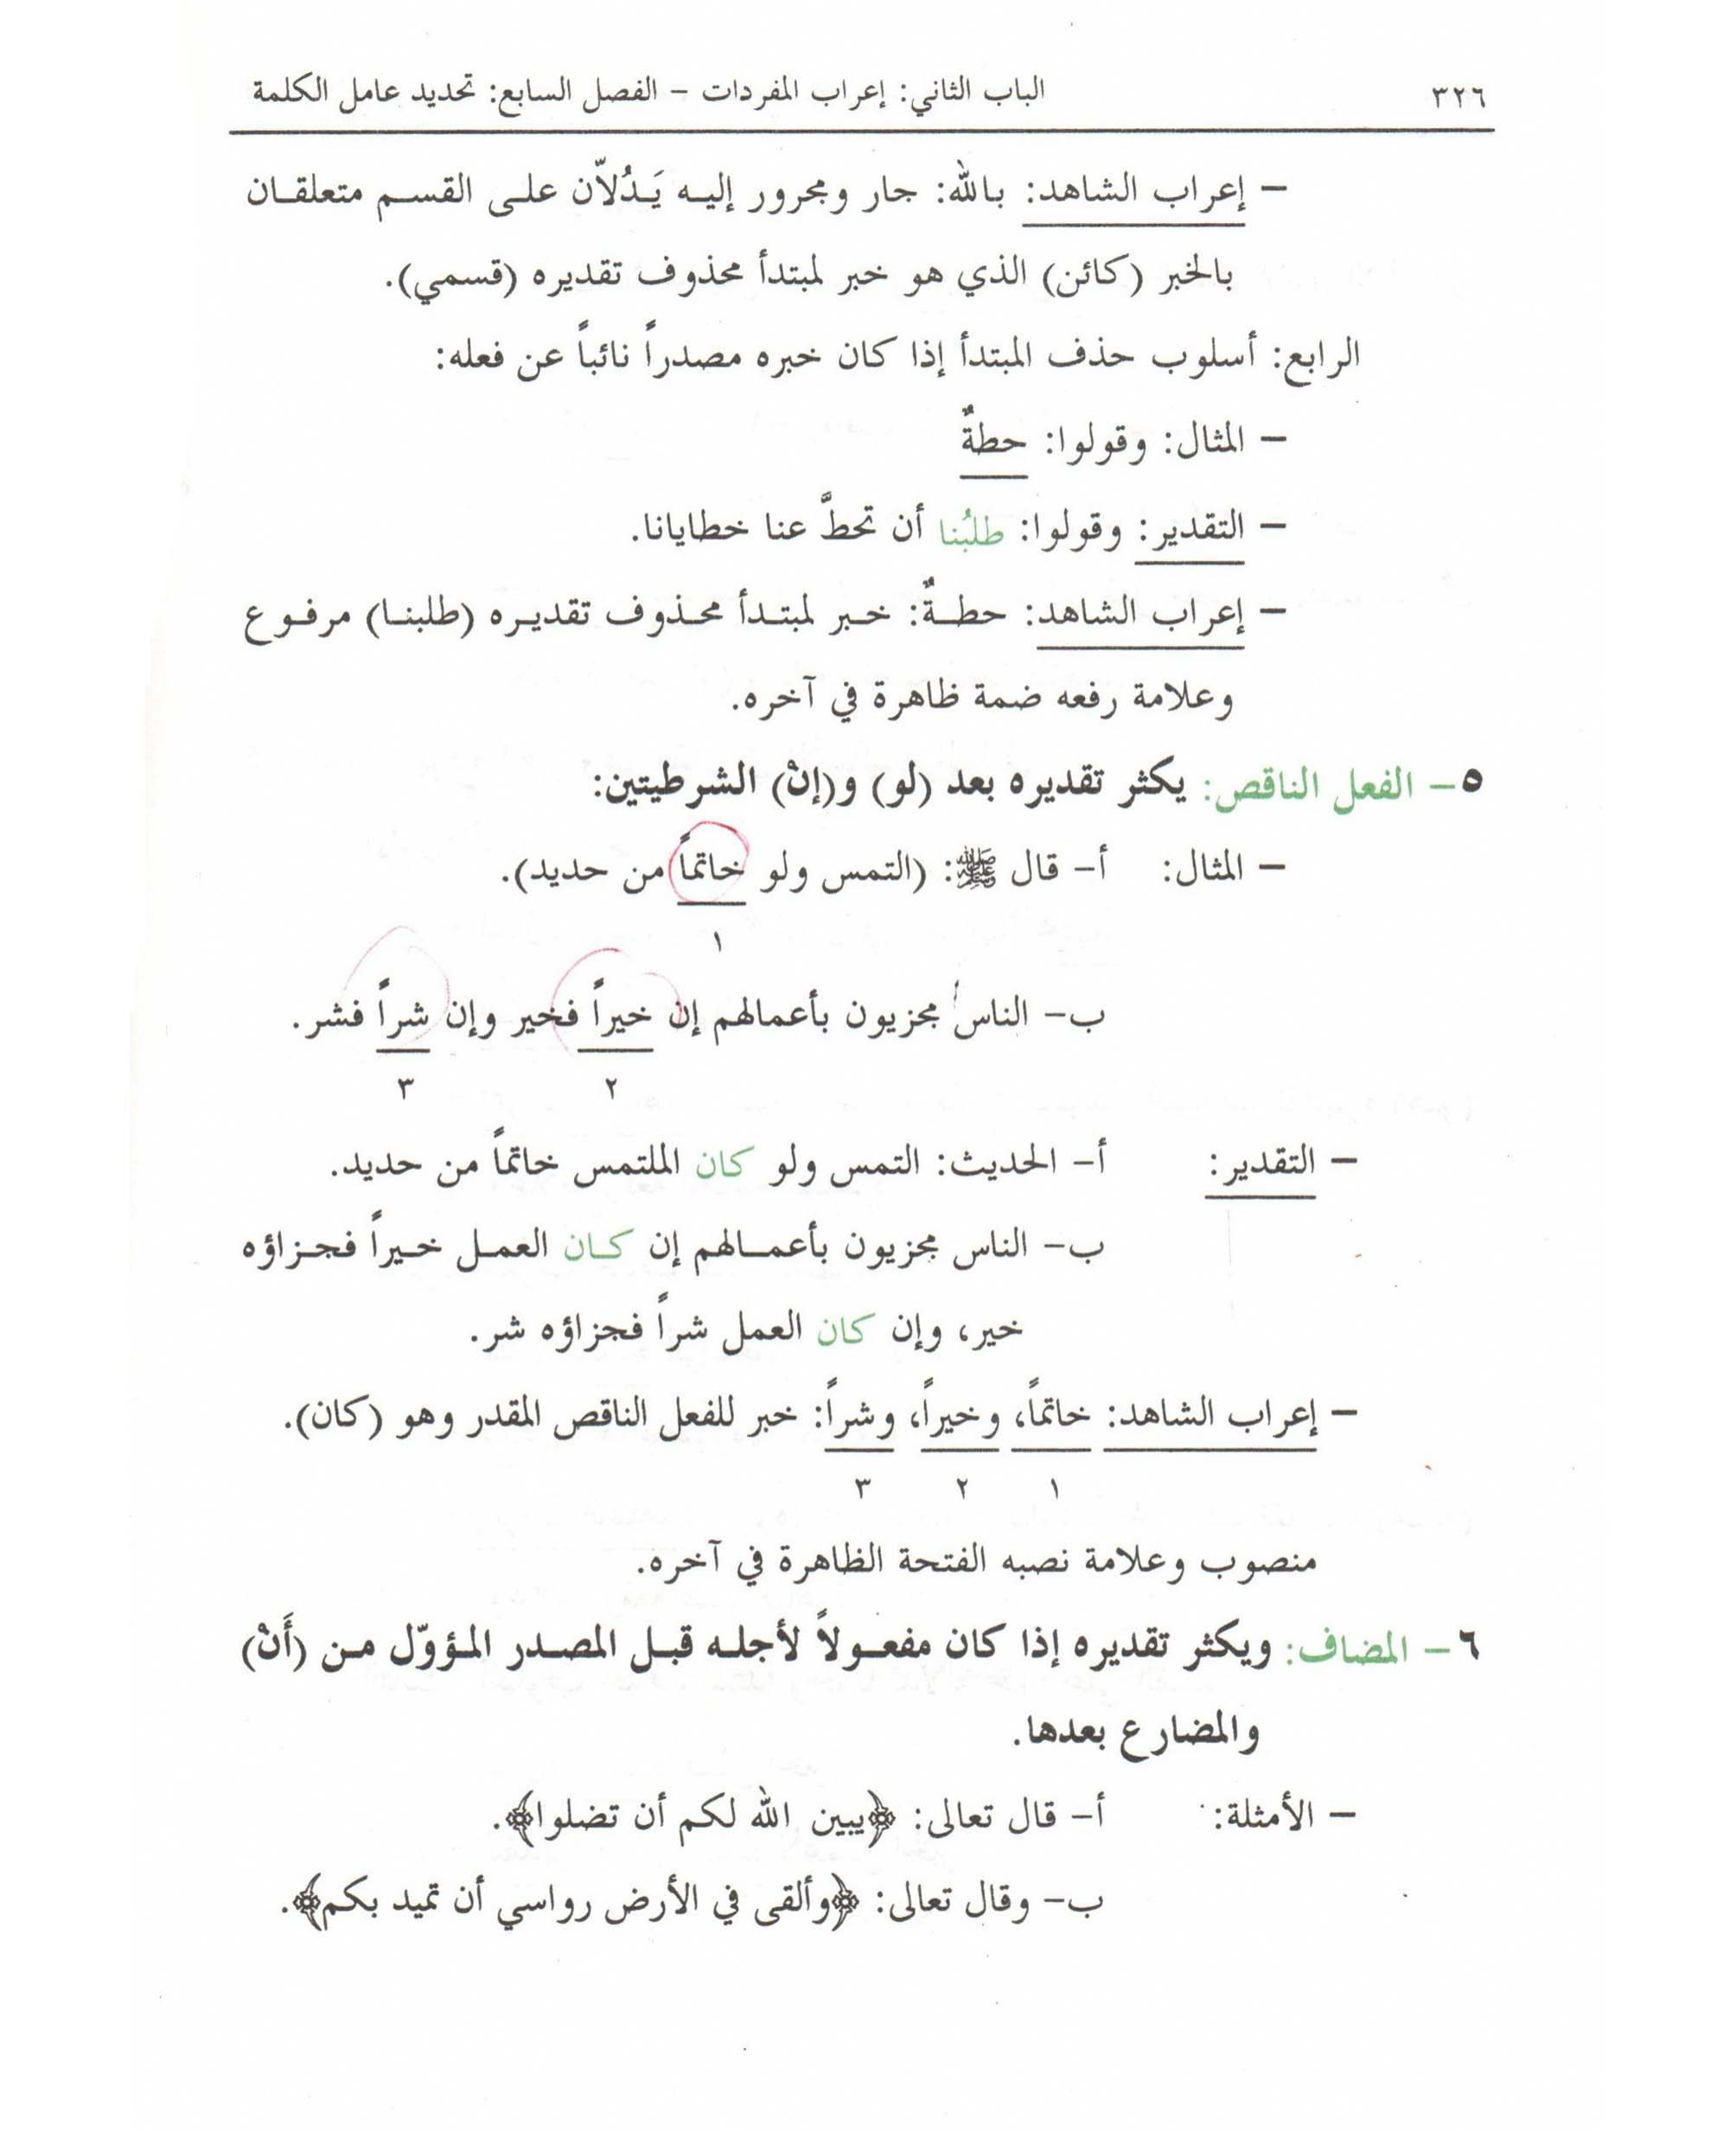 ٣٢٦ الباب الثاني: إعراب المفردات – الفصل السابع: تحديد عامل الكلمة
– إعراب الشاهد: بالله: جار ومجرور إليه يَدُلاّن على القسم متعلقان
بالخبر (كائن) الذي هو خبر لمبتدأ محذوف تقديره (قسمي).
الرابع: أسلوب حذف المبتدأ إذا كان خبره مصدراً نائباً عن فعله:
– المثال: وقولوا: حطةٌ
– التقدير: وقولوا: طلبُنا أن تحطَّ عنا خطايانا.
– إعراب الشاهد: حطةٌ: خبر لمبتدأ محذوف تقديره (طلبنا) مرفوع
وعلامة رفعه ضمة ظاهرة في آخره.
٥– الفعل الناقص: يكثر تقديره بعد (لو) و(إنْ) الشرطيتين:
– المثال: أ– قال ﷺ: (التمس ولو خاتماً من حديد).
١
ب– الناس مجزيون بأعمالهم إن خيراً فخير وإن شراً فشر.
٢ ٣
– التقدير: أ– الحديث: التمس ولو كان الملتمس خاتماً من حديد.
ب– الناس مجزيون بأعمالهم إن كان العمل خيراً فجزاؤه
خير، وإن كان العمل شراً فجزاؤه شر.
– إعراب الشاهد: خاتماً، وخيراً، وشراً: خبر للفعل الناقص المقدر وهو (كان).
١ ٢ ٣
منصوب وعلامة نصبه الفتحة الظاهرة في آخره.
٦– المضاف: ويكثر تقديره إذا كان مفعولاً لأجله قبل المصدر المؤوّل من (أَنْ)
والمضارع بعدها.
– الأمثلة: أ– قال تعالى: ﴿يبين الله لكم أن تضلوا﴾.
ب– وقال تعالى: ﴿وألقى في الأرض رواسي أن تميد بكم﴾.